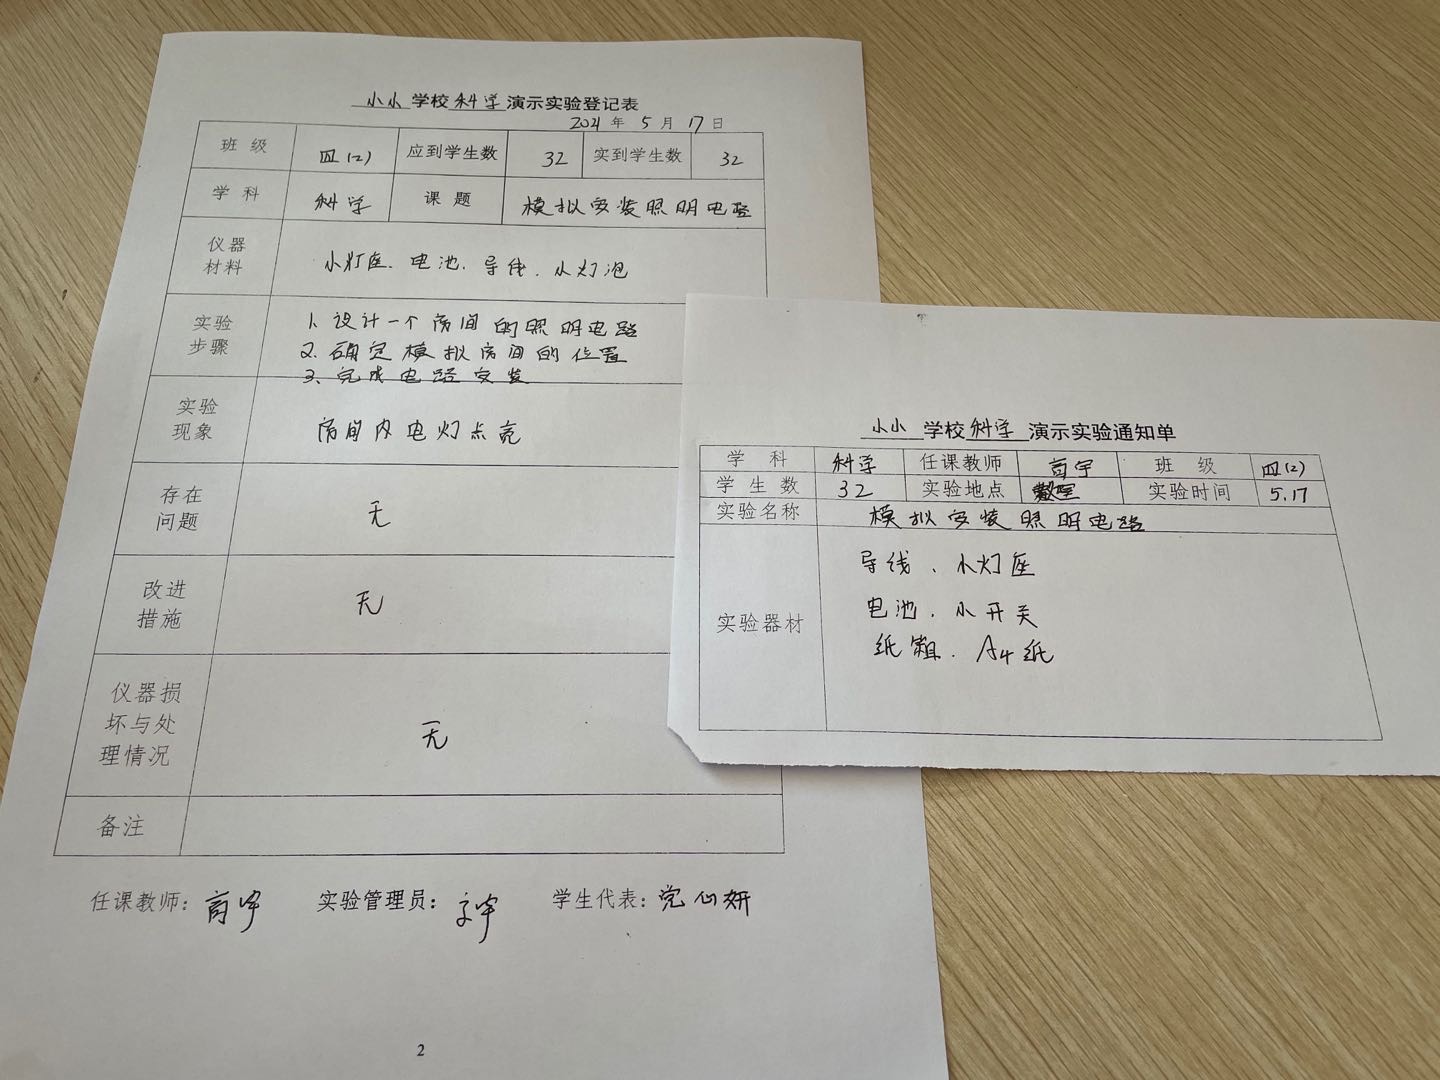 小小 学校 科学 演示实验登记表
2021 年 5 月 17 日
班 级 四(2) 应到学生数 32 实到学生数 32
学 科 科学 课 题 模拟安装照明电路
仪器材料 小灯座、电池、导线、小灯泡
实验步骤 1、设计一个房间的照明电路
2、确定模拟房间的位置
3、完成电路安装
实验现象 房间内电灯点亮
存在问题 无
改进措施 无
仪器损坏与处理情况 无
备注
任课教师: 实验管理员: 学生代表:党心妍
2
小小 学校 科学 演示实验通知单
学 科 科学 任课教师 班 级 四(2)
学 生 数 32 实验地点 实验时间 5.17
实验名称 模拟安装照明电路
实验器材 导线、小灯座
电池、小开关
纸箱、A4纸